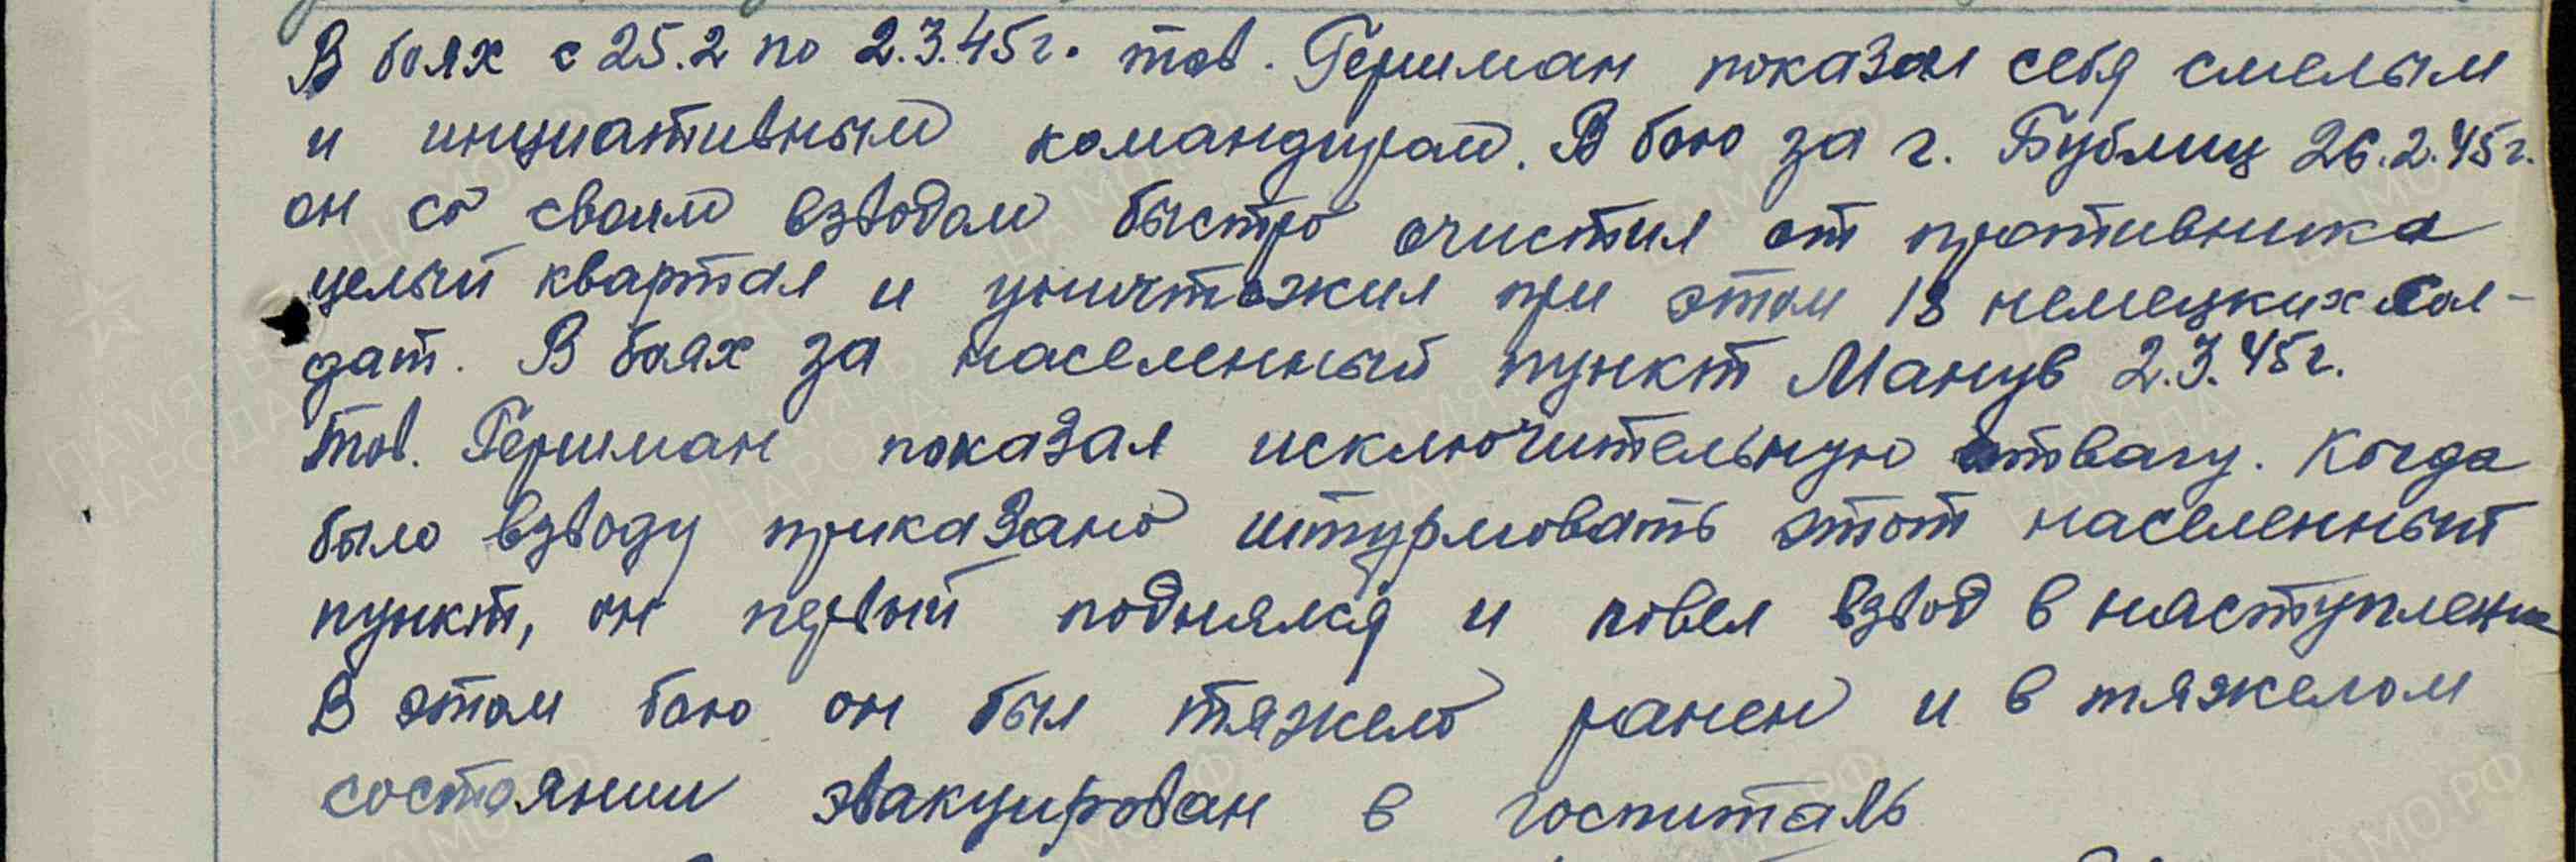 В боях с 25.2 по 2.3.45г. тов. Гершман показал себя смелым
и инициативным командиром. В бою за г. Бублиц 26.2.45г.
он со своим взводом быстро очистил от противника
целый квартал и уничтожил при этом 13 немецких сол-
дат. В боях за населенный пункт Манув 2.3.45г.
тов. Гершман показал исключительную отвагу. Когда
было взводу приказано штурмовать этот населенный
пункт, он первый поднялся и повел взвод в наступление
В этом бою он был тяжело ранен и в тяжелом
состоянии эвакуирован в госпиталь